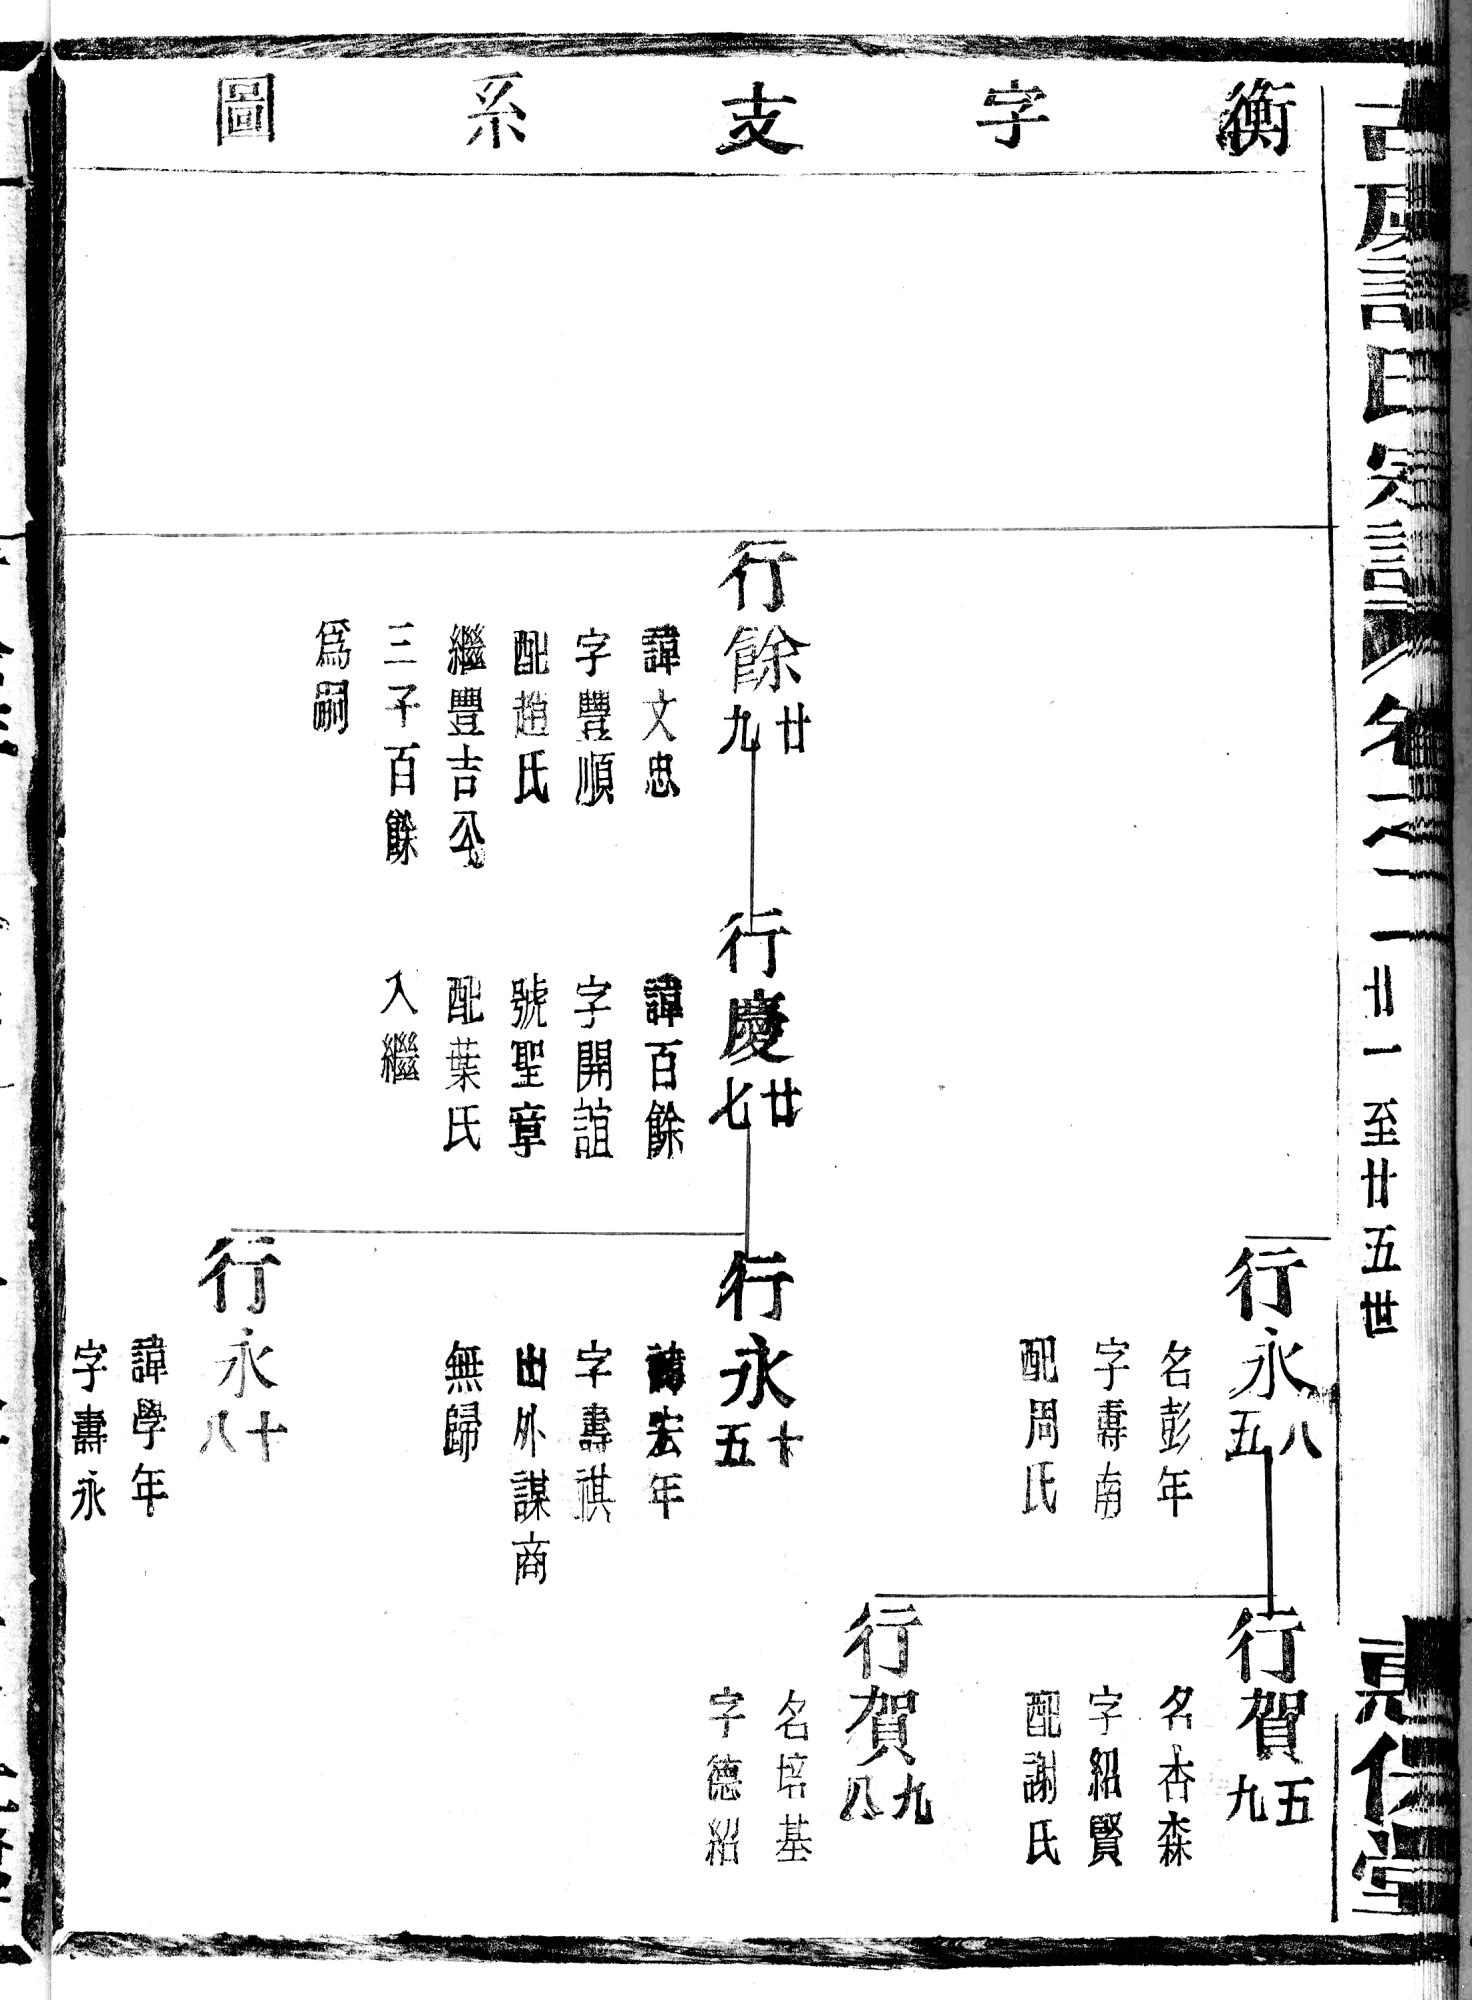 衡字支系圖
氏宗譜
卷之一
廿一至廿五世
堂
行永八五
名彭年
字壽南
配周氏
行賀五九
名杏森
字紹賢
配謝氏
行賀九八
名培基
字德紹
行餘廿九
諱文忠
字豐順
配趙氏
繼豐吉公
三子百餘
為嗣
行慶廿七
諱百餘
字開誼
號聖章
配葉氏
入繼
行永十五
諱宏年
字壽祺
出外謀商
無歸
行永十八
諱學年
字壽永